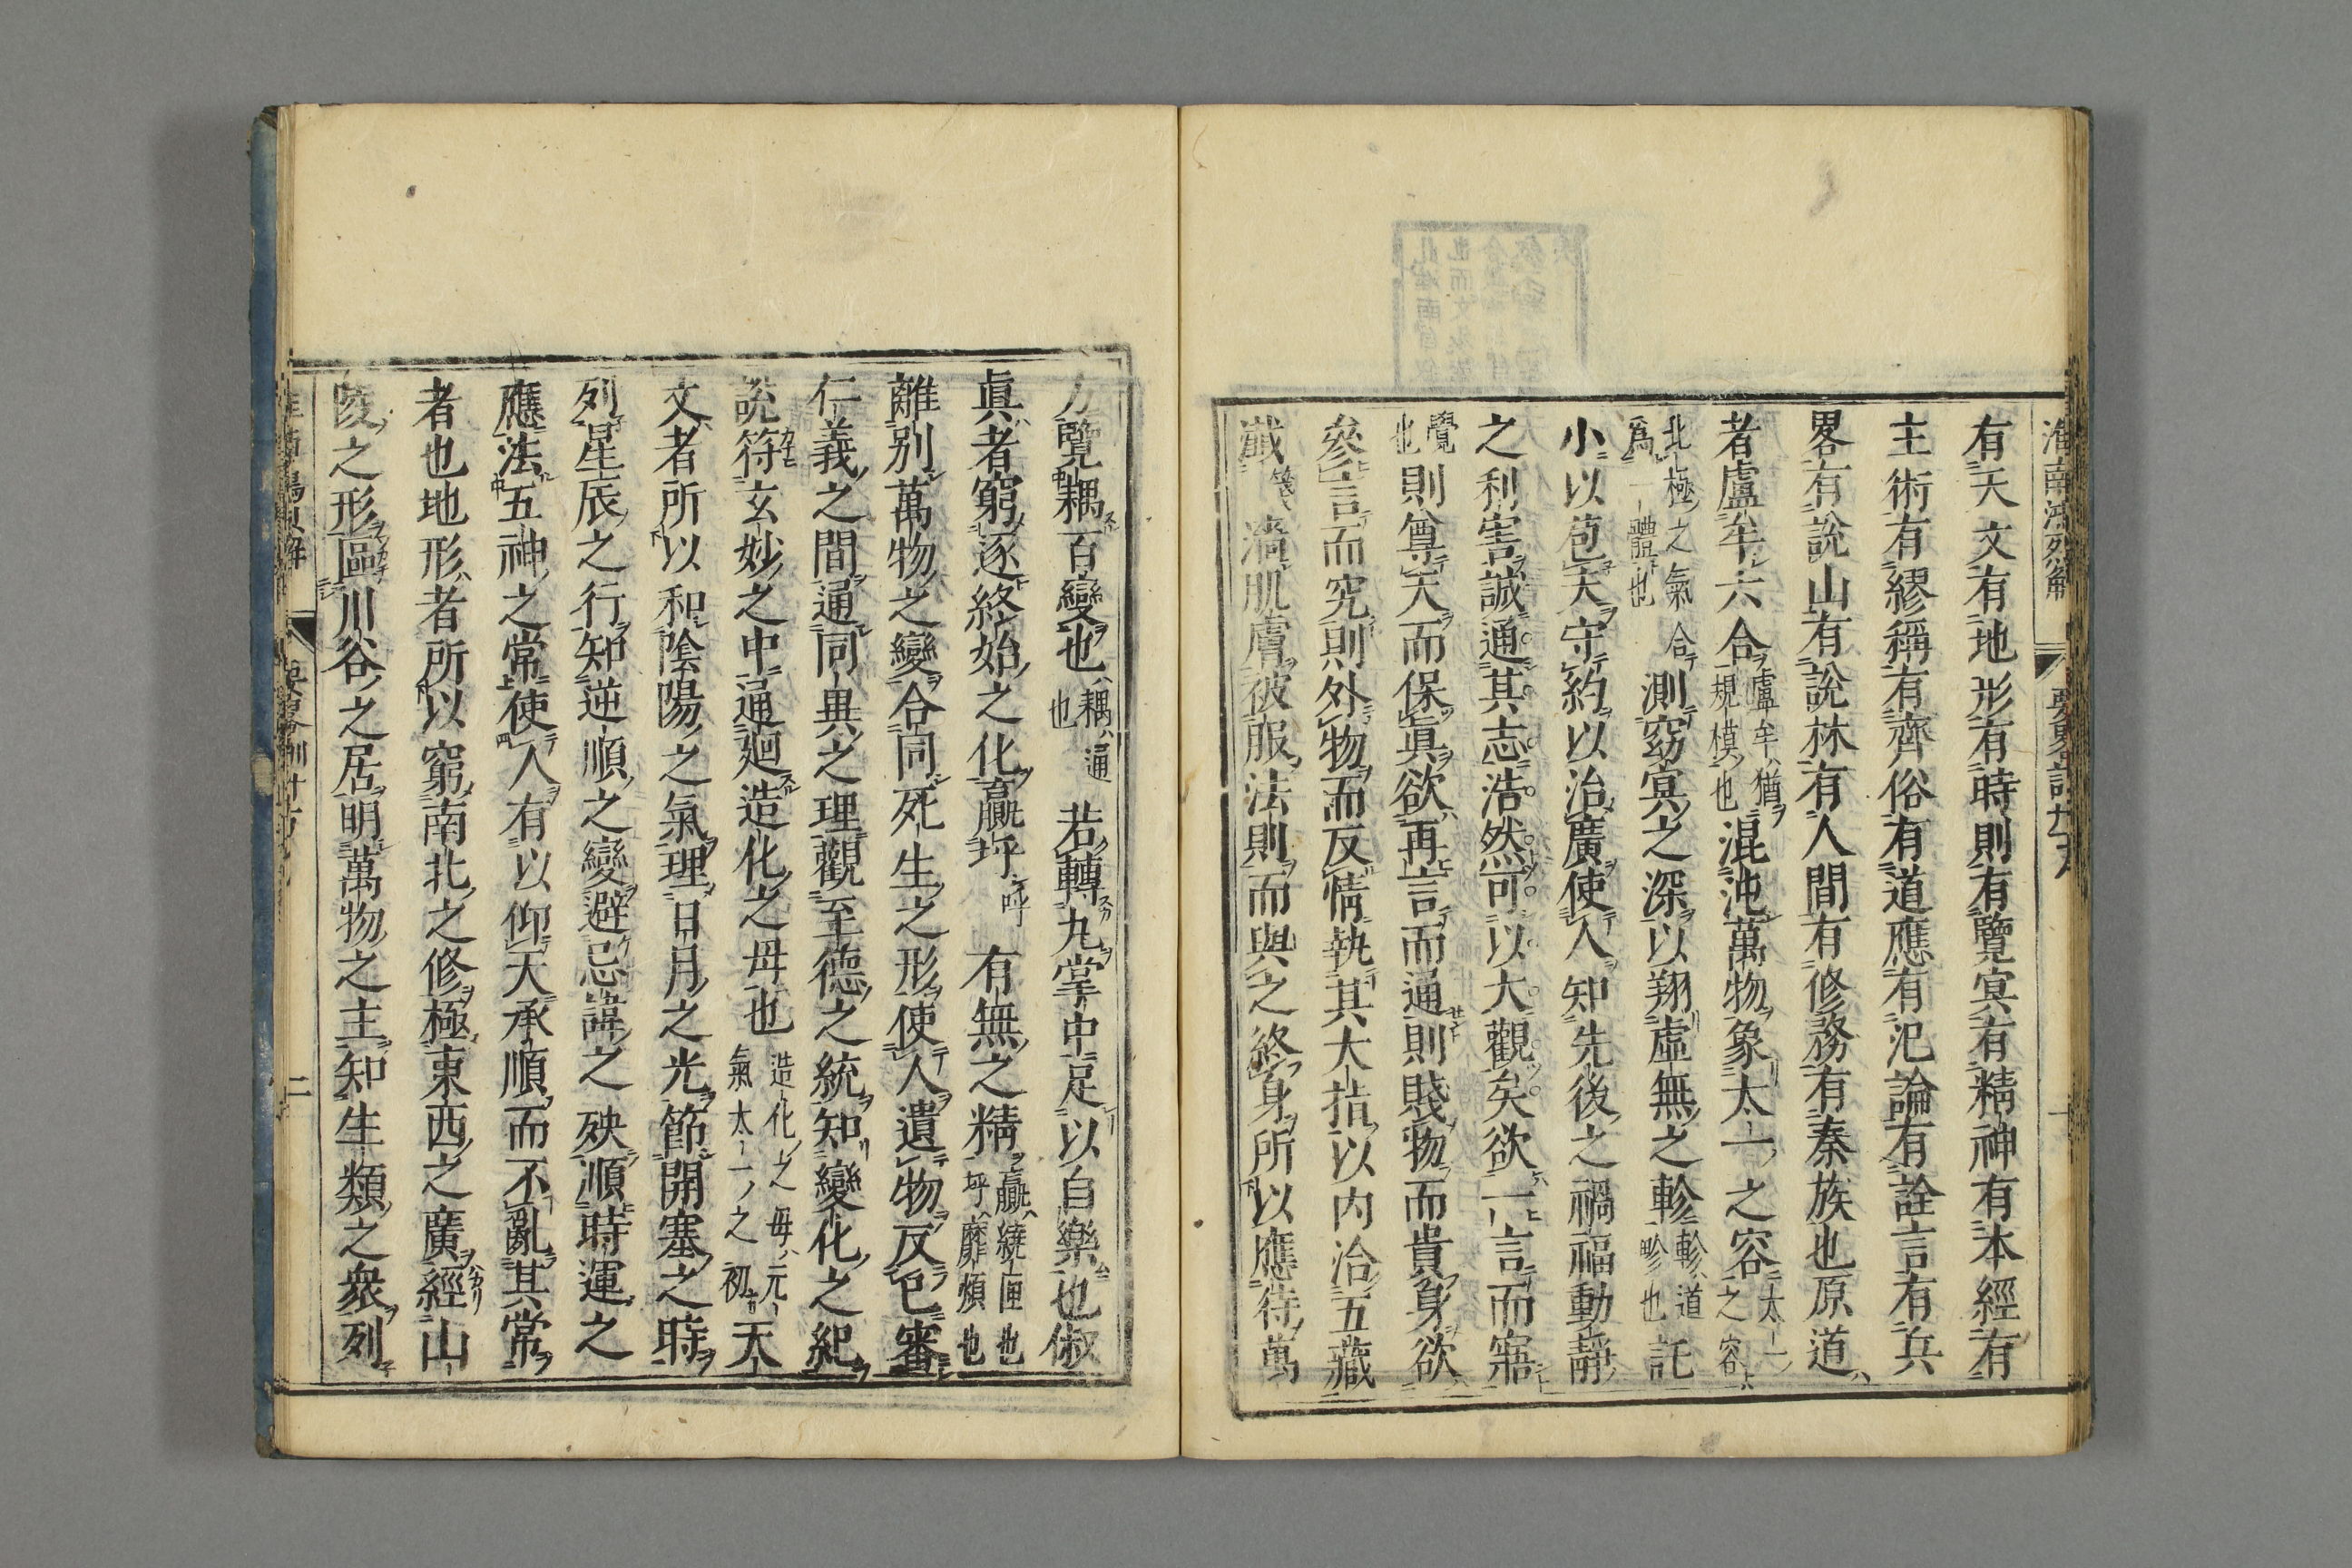 淮南鴻烈解 要畧訓廿六 一
有天文有地形有時則有覽冥有精神有本經有
主術有繆稱有齊俗有道應有氾論有詮言有兵
畧有說山有說林有人間有修務有泰族也原道
者盧牟六合盧牟猶規模也混沌萬物象太一之容太一之容
北極之氣合爲一體也測窈冥之深以翔虛無之軫軫道畛也託
小以苞大守約以治廣使人知先後之禍福動靜
之利害誠通其志浩然可以大觀矣欲一言而寤
覺也則尊天而保眞欲再言而通則賤物而貴身欲
參言而究則外物而反情執其大㧞以内洽五藏
瀸㵶肌膚被服法則而與之終身所以應待萬
方覽耦百變也耦通也若轉丸掌中足以自樂也俶
眞者窮逐終始之化嬴垀呼有無之精嬴繞匝也垀靡煩也
離别萬物之變合同死生之形使人遺物反己審
仁義之間通同異之理觀至德之統知變化之紀
說符玄妙之中通廻造化之母也造化之母元氣太一之初天
文者所以和陰陽之氣理日月之光節開塞之時
列星辰之行知逆順之變避忌諱之殃順時運之
應法五神之常使人有以仰天承順而不亂其常
者也地形者所以窮南北之修極東西之廣經山
陵之形區川谷之居明萬物之主知生類之衆列
二